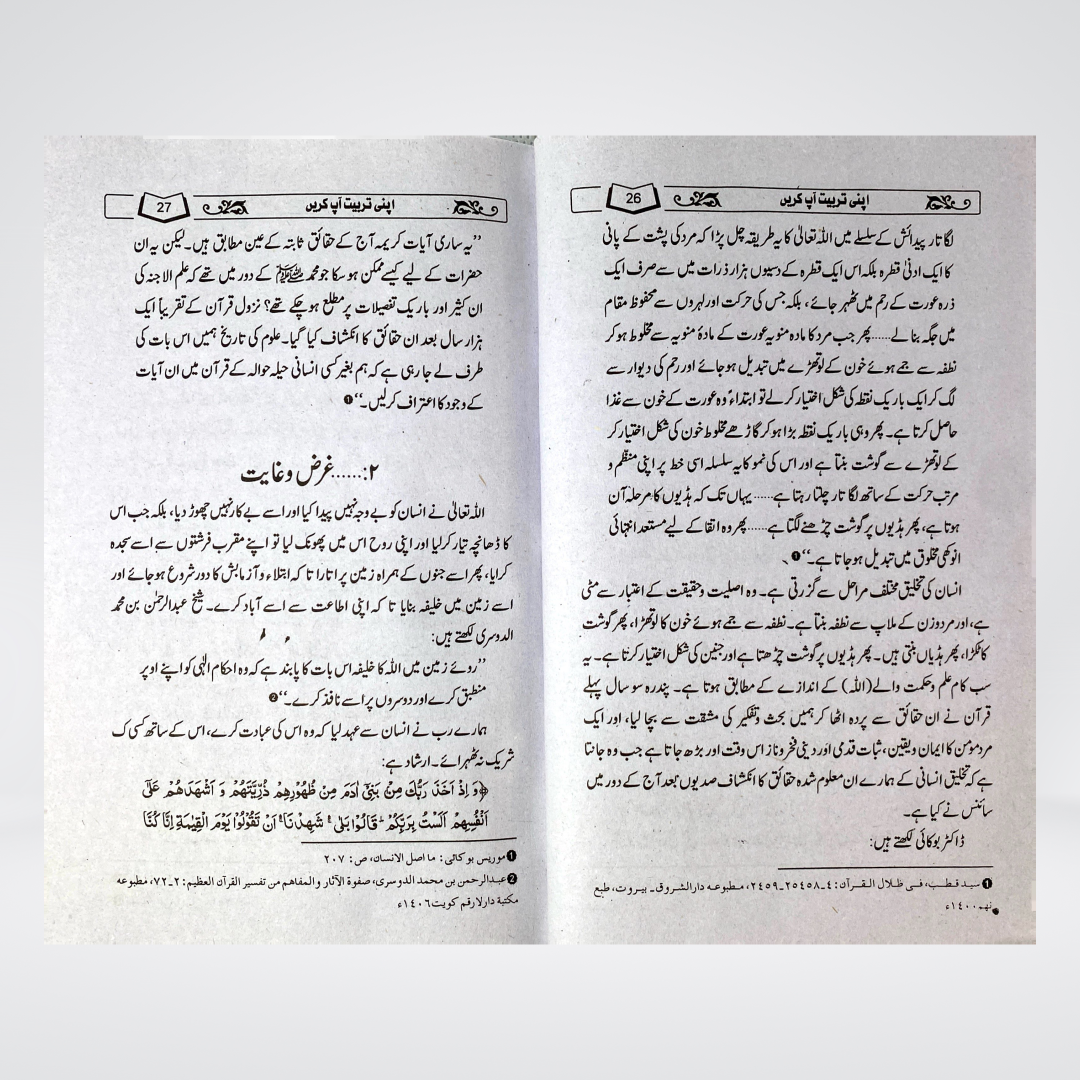 26
اپنی تربیت آپ کریں
لگا تار پیدائش کے سلسلے میں اللہ تعالیٰ کا یہ طریقہ چل پڑا کہ مرد کی پشت کے پانی
کا ایک ادنیٰ قطرہ بلکہ اس ایک قطرہ کے دسیوں ہزار ذرات میں سے صرف ایک
ذرہ عورت کے رحم میں ٹھہر جائے، بلکہ جس کی حرکت اور لہروں سے محفوظ مقام
میں جگہ بنالے......پھر جب مرد کا مادہ منویہ عورت کے مادۂ منویہ سے مخلوط ہو کر
نطفہ سے جمے ہوئے خون کے لوتھڑے میں تبدیل ہوجائے اور رحم کی دیوار سے
لگ کر ایک باریک نقطہ کی شکل اختیار کرلے تو ابتداءً وہ عورت کے خون سے غذا
حاصل کرتا ہے۔ پھر وہی باریک نقطہ بڑا ہو کر گاڑھے مخلوط خون کی شکل اختیار کر
کے لوتھڑے سے گوشت بنتا ہے اور اس کی نمو کا یہ سلسلہ اسی خط پر اپنی منظم و
مرتب حرکت کے ساتھ لگا تار چلتا رہتا ہے...... یہاں تک کہ ہڈیوں کا مرحلہ آن
ہوتا ہے، پھر ہڈیوں پر گوشت چڑھنے لگتا ہے......پھر وہ انقا کے لیے مستعد انتہائی
انوکھی مخلوق میں تبدیل ہوجاتا ہے۔‘‘❶
انسان کی تخلیق مختلف مراحل سے گزرتی ہے۔ وہ اصلیت و حقیقت کے اعتبار سے مٹی
ہے، اور مرد و زن کے ملاپ سے نطفہ بنتا ہے۔ نطفہ سے جمے ہوئے خون کا لوتھڑا، پھر گوشت
کا ٹکڑا، پھر ہڈیاں بنتی ہیں۔ پھر ہڈیوں پر گوشت چڑھتا ہے اور جنین کی شکل اختیار کرتا ہے۔ یہ
سب کام علم و حکمت والے (اللہ) کے اندازے کے مطابق ہوتا ہے۔ پندرہ سو سال پہلے
قرآن نے ان حقائق سے پردہ اٹھا کر ہمیں بحث و تفکیر کی مشقت سے بچا لیا، اور ایک
مرد مومن کا ایمان و یقین، ثبات قدمی اور دینی فخر و ناز اس وقت اور بڑھ جاتا ہے جب وہ جانتا
ہے کہ تخلیق انسانی کے ہمارے ان معلوم شدہ حقائق کا انکشاف صدیوں بعد آج کے دور میں
سائنس نے کیا ہے۔
ڈاکٹر بوکائی لکھتے ہیں:
❶ سید قطب، فی ظلال القرآن: ٤_٢٥٤٥٨_٢٤٥٩، مطبوعہ دارالشروق۔ بیروت، طبع
نہم ١٤٠٠ء
27
اپنی تربیت آپ کریں
’’یہ ساری آیات کریمہ آج کے حقائق ثابتہ کے عین مطابق ہیں۔ لیکن یہ ان
حضرات کے لیے کیسے ممکن ہوسکا جو محمد ﷺ کے دور میں تھے کہ علم الاجنہ کی
ان کثیر اور باریک تفصیلات پر مطلع ہو چکے تھے؟ نزول قرآن کے تقریباً ایک
ہزار سال بعد ان حقائق کا انکشاف کیا گیا۔ علوم کی تاریخ ہمیں اس بات کی
طرف لے جا رہی ہے کہ ہم بغیر کسی انسانی حیلہ حوالہ کے قرآن میں ان آیات
کے وجود کا اعتراف کرلیں۔‘‘❶
۲:......غرض و غایت
اللہ تعالیٰ نے انسان کو بے وجہ نہیں پیدا کیا اور اسے بے کار نہیں چھوڑ دیا، بلکہ جب اس
کا ڈھانچہ تیار کرلیا اور اپنی روح اس میں پھونک لیا تو اپنے مقرب فرشتوں سے اسے سجدہ
کرایا، پھر اسے جنوں کے ہمراہ زمین پر اتارا تا کہ ابتلاء و آزمایش کا دور شروع ہوجائے اور
اسے زمین میں خلیفہ بنایا تا کہ اپنی اطاعت سے اسے آباد کرے۔ شیخ عبدالرحمٰن بن محمد
الدوسری لکھتے ہیں:
’’روئے زمین میں اللہ کا خلیفہ اس بات کا پابند ہے کہ وہ احکام الٰہی کو اپنے اوپر
منطبق کرے اور دوسروں پر اسے نافذ کرے۔‘‘❷
ہمارے رب نے انسان سے عہد لیا کہ وہ اس کی عبادت کرے، اس کے ساتھ کسی ک
شریک نہ ٹھہرائے۔ ارشاد ہے:
﴿وَ اِذْ اَخَذَ رَبُّكَ مِنْ بَنِيْٓ اٰدَمَ مِنْ ظُهُوْرِهِمْ ذُرِّيَّتَهُمْ وَ اَشْهَدَهُمْ عَلٰٓى
اَنْفُسِهِمْ اَلَسْتُ بِرَبِّكُمْ ؕ قَالُوْا بَلٰى ۛۚ شَهِدْنَا ۛۚ اَنْ تَقُوْلُوْا يَوْمَ الْقِيٰمَةِ اِنَّا كُنَّا
❶ موریس بوکائی: ما اصل الانسان، ص: ٢٠٧
❷ عبدالرحمن بن محمد الدوسری، صفوۃ الآثار و المفاہم من تفسیر القرآن العظیم: ٢_٧٢، مطبوعہ
مکتبۃ دارلارقم کویت ١٤٠٦ء